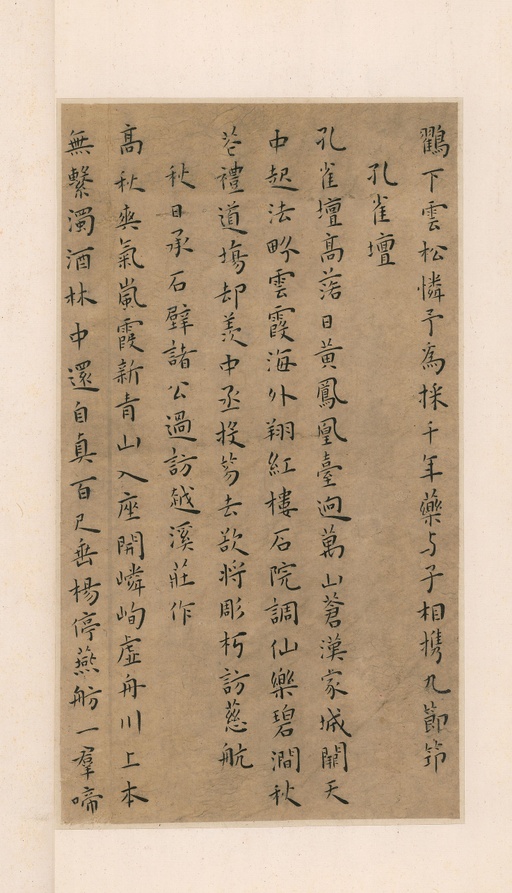 鸛下雲松憐予為採千年藥与子相攜九節筇
孔雀壇
孔雀壇高落日黃鳳凰臺迥萬山蒼漢家城闕天
中起法畧雲霞海外翔紅樓石院調仙樂碧澗秋
苍禮道塲却羨中丞投笏去欲將彫朽訪慈航
秋日承石壁諸公過訪越溪莊作
高秋爽氣嵐霞新青山入座開嶙峋虛舟川上本
無繫濁酒林中還自真百尺垂楊停燕舫一羣啼